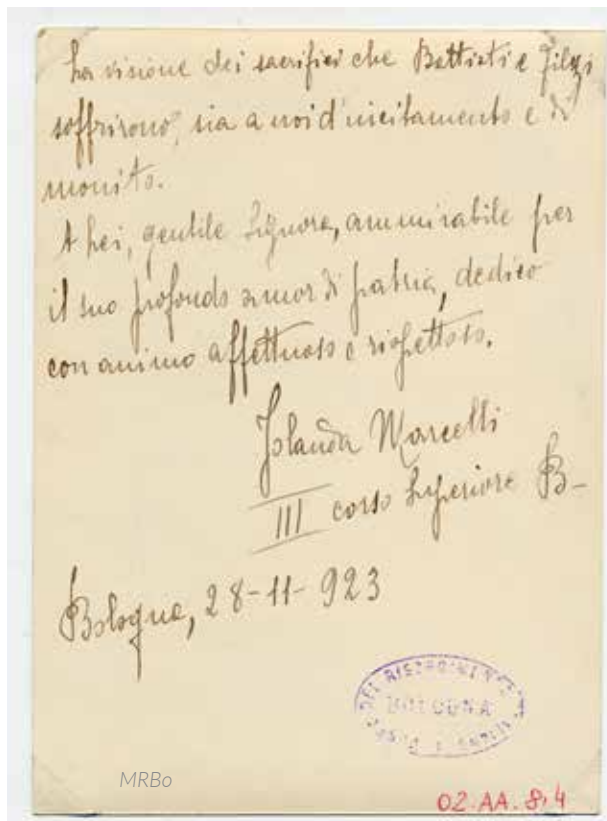 La visione dei sacrifici che Battisti e Filzi
soffrirono, sia a noi d'incitamento e di
monito.
A Lei, gentile Signora, ammirabile per
il suo profondo amor di patria, dedico
con animo affettuoso e rispettoso.
Jolanda Marcelli
III corso Superiore B-
Bologna, 28-11-923
DEL RISORGIMENTO
BOLOGNA
MRBo
02.AA.8,4